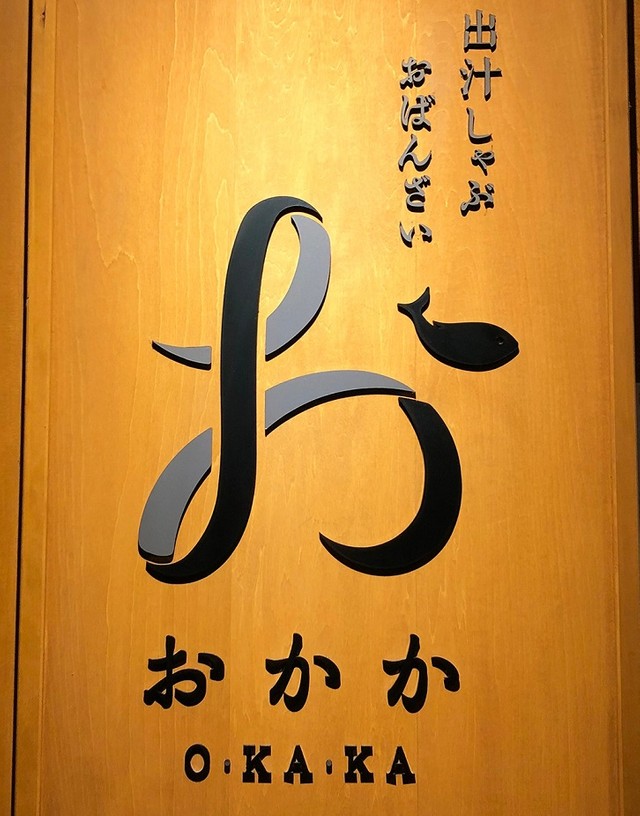 出汁しゃぶ
おばんざい
お
おかか
O・KA・KA